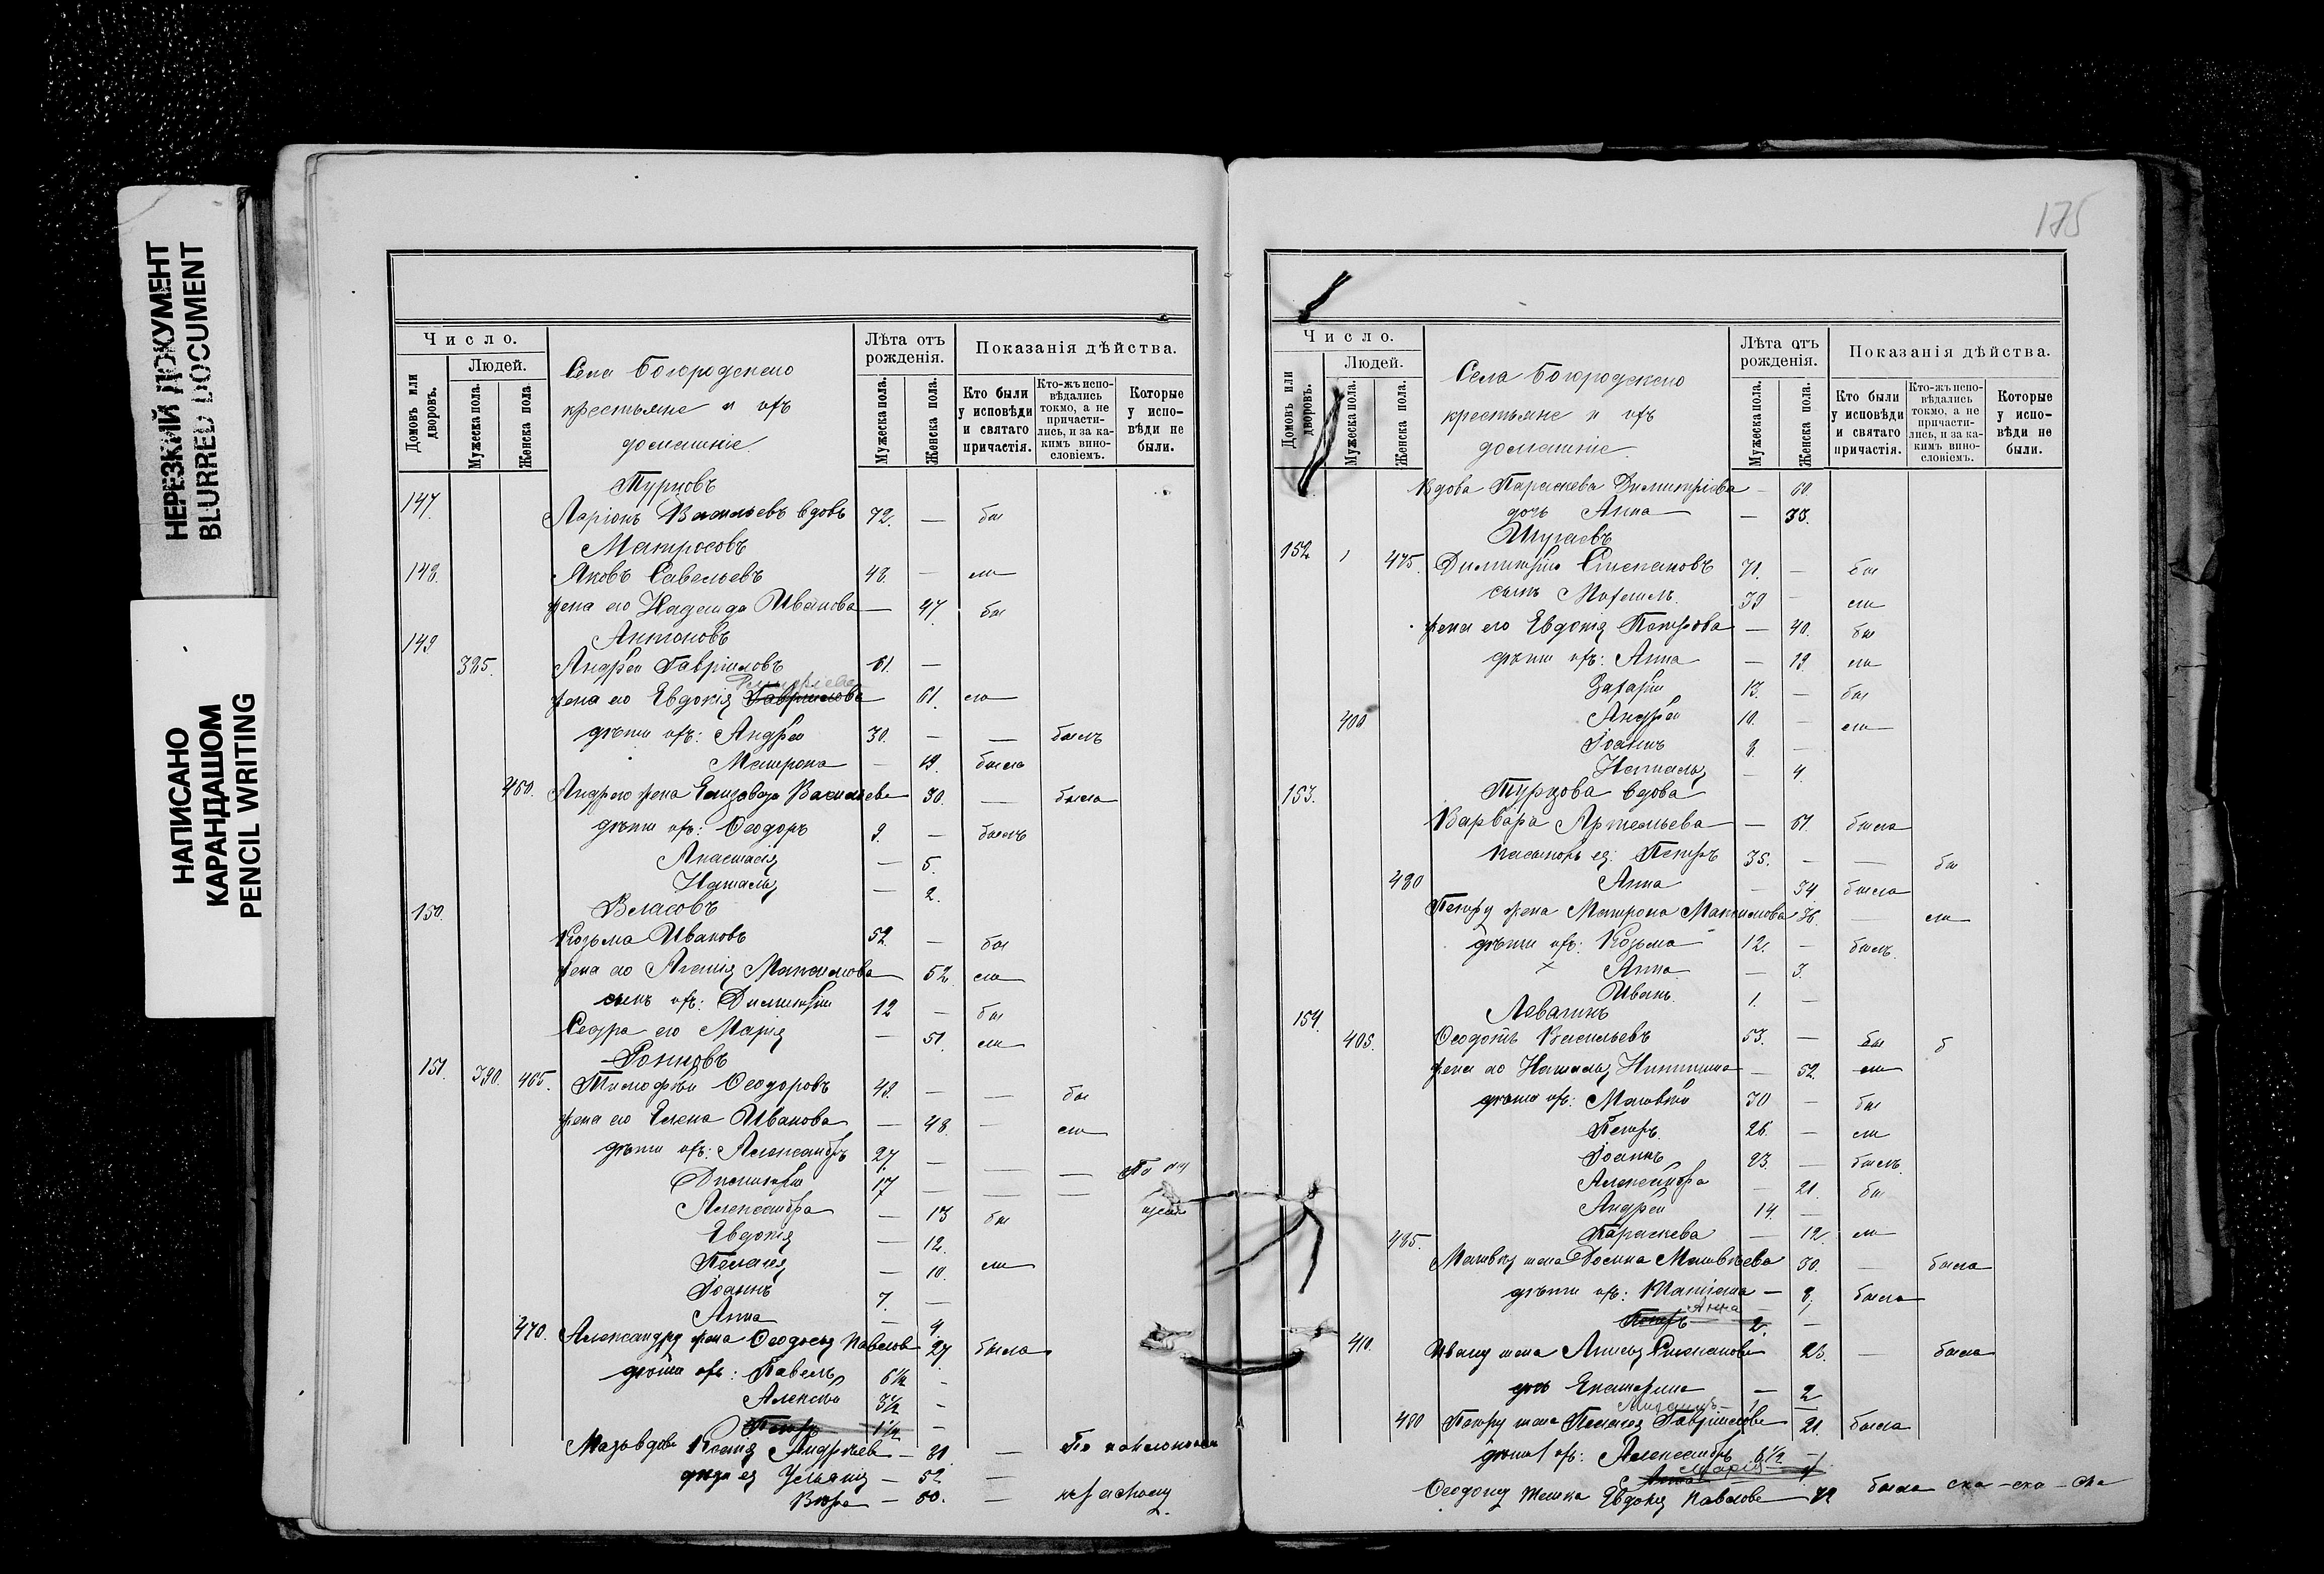 НЕРЕЗКИЙ ДОКУМЕНТ
BLURRED DOCUMENT
НАПИСАНО
КАРАНДАШОМ
PENCIL WRITING
Число.
Домовъ или дворовъ.
Людей.
Мужеска пола.
Женска пола.
Села Богородскаго
крестьяне и ихъ
домашніе.
Лѣта отъ рожденія.
Мужеска пола.
Женска пола.
Показанія дѣйства.
Кто были у исповѣди и святаго причастія.
Кто-жъ исповѣдались токмо, а не причастились, и за какимъ винословіемъ.
Которые у исповѣди не были.
147.
Ларіонъ Васильевъ вдовъ 72. — бы
Матросовъ
148. Яковъ Савельевъ 48. — ли
жена его Надежда Иванова — 47. бы
149 Антоновъ
385. Андрей Гавріиловъ 61. —
жена его Евдокія Гавриилова 61. ли
дѣти ихъ: Андрей 30. — — былъ
Матрона — 19. была
460. Андрею жена Елизавета Васильева 30. — была
дѣти ихъ: Ѳеодоръ 9. — былъ
Анастасія — 5.
Наталья — 2.
150. Власовъ
Козьма Ивановъ 52. — бы
жена его Агапія Максимова 52. ли
сынъ ихъ: Димитрій 12 — бы
Сестра его Марія — 51. ли
151. 390. 465.
Тимофей Ѳеодоровъ 49. — — бы
жена его Елена Иванова — 48. — ли
дѣти ихъ: Александръ 27. — — —
Димитрій 17 — — —
Александра — 13 бы
Евдокія — 12.
Пелагея — 10. ли
Іоаннъ 7. —
Анна — 4
470. Александру жена Ѳеодосья Павлова 27. была
дѣти ихъ: Павелъ 6½ —
Алексей 3½ —
Петръ 1½ —
Андреева —
дѣти ея —
175
Число.
Домовъ или дворовъ.
Людей.
Мужеска пола.
Женска пола.
Села Богородскаго
крестьяне и ихъ
домашніе.
Лѣта отъ рожденія.
Мужеска пола.
Женска пола.
Показанія дѣйства.
Кто были у исповѣди и святаго причастія.
Кто-жъ исповѣдались токмо, а не причастились, и за какимъ винословіемъ.
Которые у исповѣди не были.
Вдова Параскева Димитріева — 60.
дочь Анна — 38.
152 1 475. Димитрій Степановъ 71. — бы
сынъ Михаилъ 39 — ли
жена его Евдокія Петрова — 40. бы
дѣти ихъ: Анна — 19. ли
Захарій 13. — бы
400 Андрей 10. — ли
Іоаннъ 8. —
Наталья — 4.
153. вдова
Варвара Артемьева — 61. была
Пасынокъ ея: Петръ 35. — — бы
480 Анна — 34. была
Петру жена Матрона Максимова 36. — ли
дѣти ихъ: Козьма 12. — былъ.
Анна — 3.
Иванъ. 1. —
154. Левагинъ
405. Ѳеодотъ Васильевъ 53. — бы б
жена его Наталья Никитина — 52. ли
дѣти ихъ: Матвей 30 — бы
Петръ. 26. — ли
Іоаннъ 23. — былъ.
Александра — 21. бы
Андрей 14. —
485. Параскева — 12. ли
Матвею жена Домна Матвѣева 30. — была
дѣти ихъ: — 8. была
Анна
Петръ 2. —
410. Ивану жена Агафья Степанова 23. — была
дочь Екатерина — 2
490 Петру жена Пелагея Гавріилова 21. была
дѣти ихъ: Александръ 6½ —
Марія
Ѳеодоту Евдокія Павлова была